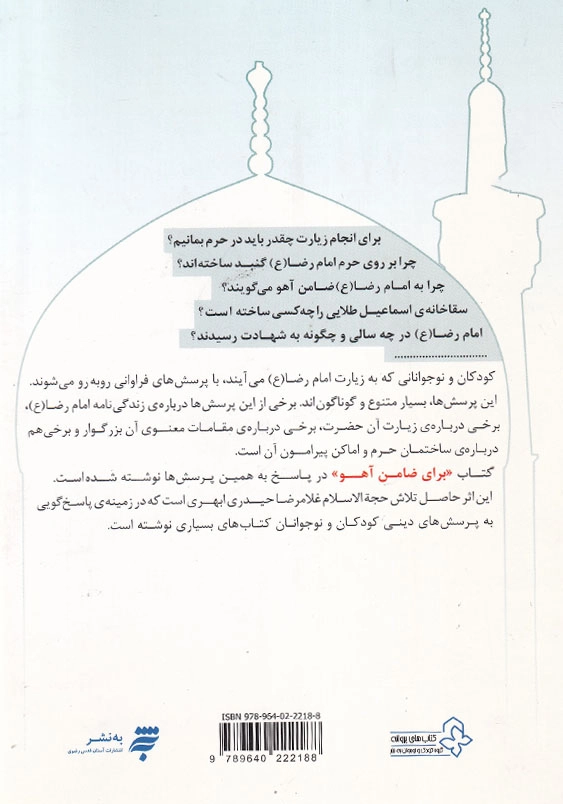 برای انجام زیارت چقدر باید در حرم بمانیم؟
چرا بر روی حرم امام رضا(ع) گنبد ساخته‌اند؟
چرا به امام رضا(ع) ضامن آهو می‌گویند؟
سقاخانه‌ی اسماعیل طلایی را چه کسی ساخته است؟
امام رضا(ع) در چه سالی و چگونه به شهادت رسیدند؟
................................
کودکان و نوجوانانی که به زیارت امام رضا(ع) می‌آیند، با پرسش‌های فراوانی روبه‌رو می‌شوند.
این پرسش‌ها، بسیار متنوع و گوناگون‌اند. برخی از این پرسش‌ها درباره‌ی زندگی‌نامه امام رضا(ع)،
برخی درباره‌ی زیارت آن حضرت، برخی درباره‌ی مقامات معنوی آن بزرگوار و برخی هم
درباره‌ی ساختمان حرم و اماکن پیرامون آن است.
کتاب «برای ضامن آهو» در پاسخ به همین پرسش‌ها نوشته شده است.
این اثر حاصل تلاش حجة‌الاسلام غلامرضا حیدری ابهری است که در زمینه‌ی پاسخ‌گویی
به پرسش‌های دینی کودکان و نوجوانان کتاب‌های بسیاری نوشته است.
ISBN 978-964-02-2218-8
9 789640 222188
به‌نشر
انتشارات آستان قدس رضوی
کتاب‌های پروانه
گروه کودک و نوجوان به‌نشر